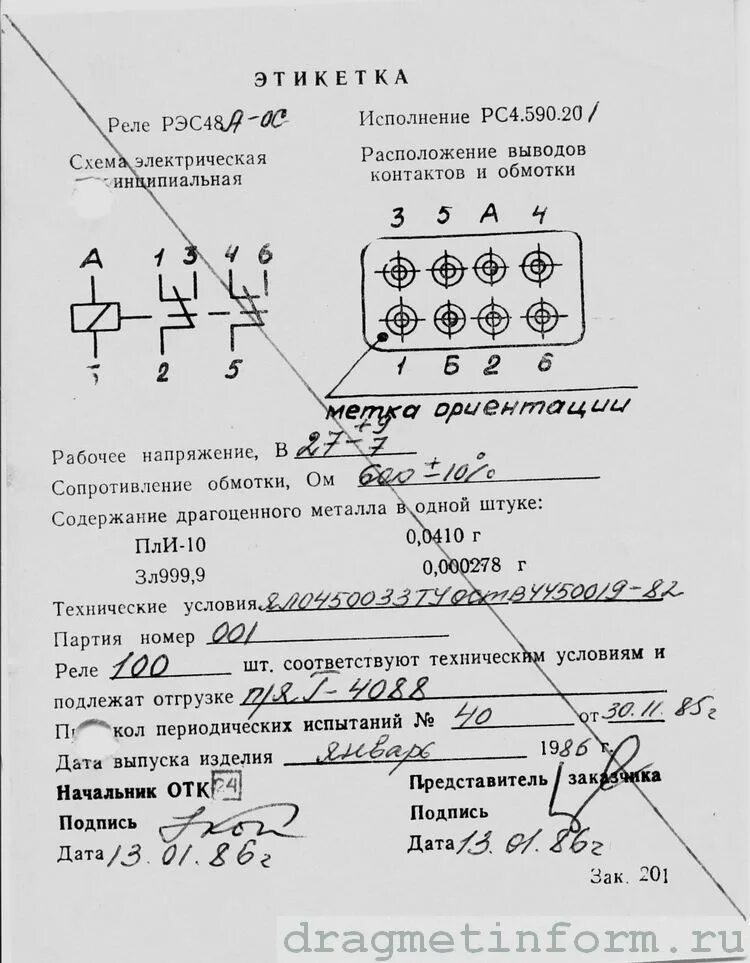 ЭТИКЕТКА
Реле РЭС48А-ОС
Исполнение РС4.590.201
Схема электрическая
инципиальная
Расположение выводов
контактов и обмотки
3 5 А 4
А 1 3 4 6
2 5
1 Б 2 6
метка ориентации
Рабочее напряжение, В 27 +9 -7
Сопротивление обмотки, Ом 600 ± 10%
Содержание драгоценного металла в одной штуке:
ПлИ-10 0,0410 г
Зл999,9 0,000278 г
Технические условия ЯЛ0450033ТУ ОСТ В 4450019-82
Партия номер 001
Реле 100 шт. соответствуют техническим условиям и
подлежат отгрузке п/я Г-4088
кол периодических испытаний № 40 от 30.11.85г
Дата выпуска изделия январь 1986 г.
Начальник ОТК 24
Представитель заказчика
Подпись
Подпись
Дата 13.01.86г
Дата 13.01.86г
Зак. 201
dragmetinform.ru